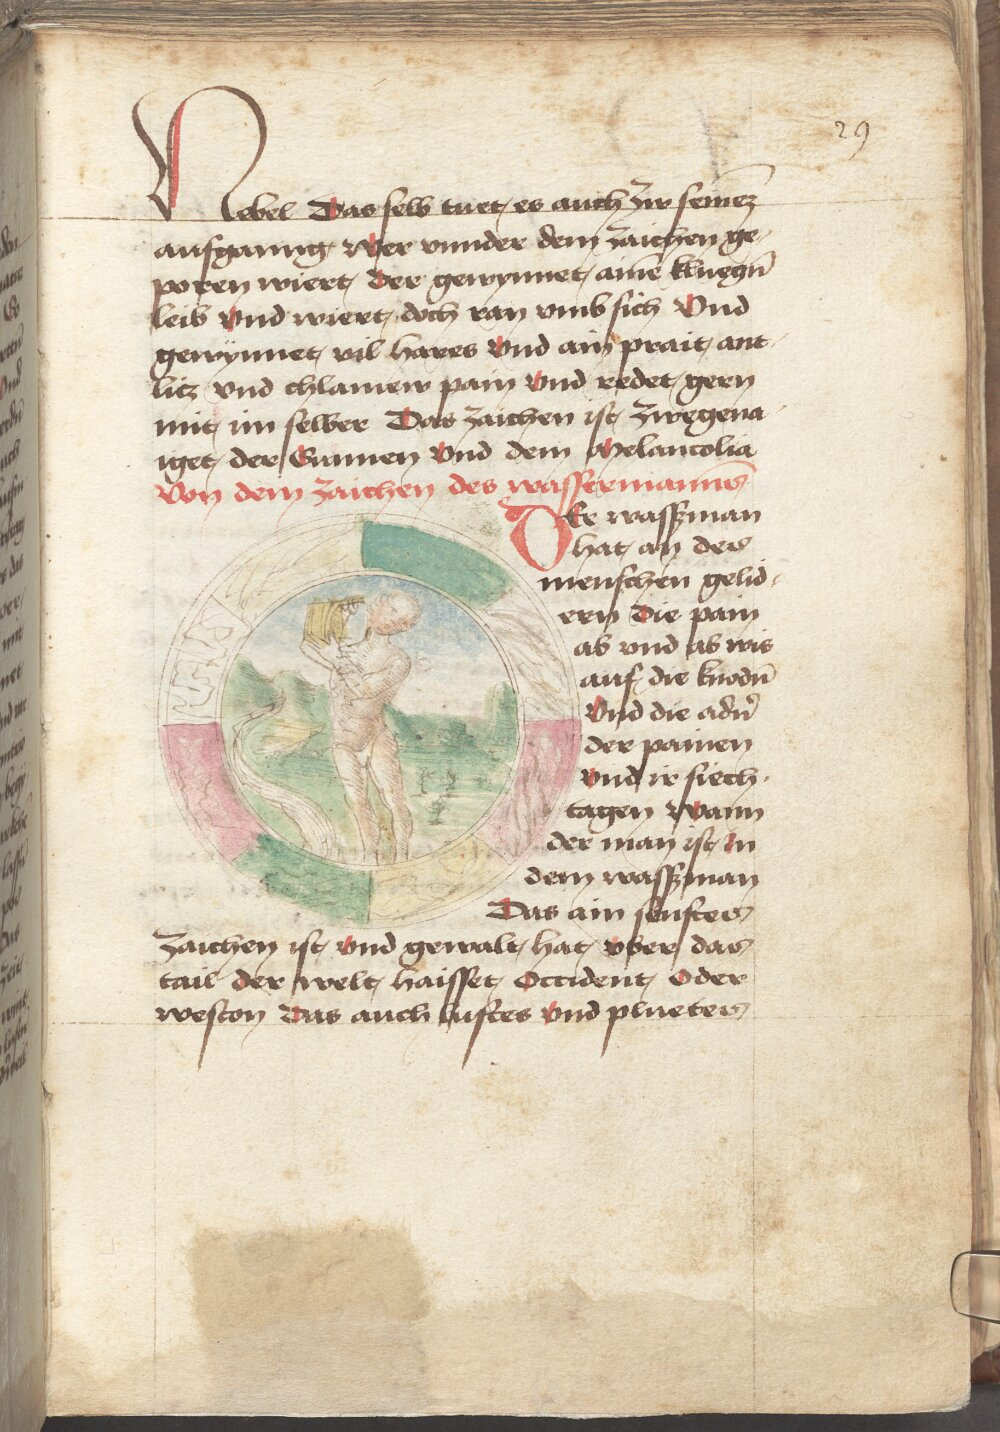 29
Nebel Das selb tuet es auch zw seinez
aufganng Wer vnnder dem zaichen ge-
poren wiert der gewynnet aine kluegn̄
leib Vnd wiert doch ran vmb sich Vnd
gewynnet vil hares Vnd ain prait ant-
litz vnd chlainew pain Vnd redet gern
mit im selber Das zaichen ist zwegena-
iget der Sunnen Vnd dem Melancolia
Von dem zaichen des wassermanns
Der wassman
hat an des
menschen gelid-
ern Die pain
ab vnd ab wis
auf die knodn̄
Vnd die adn̄
der painen
Vnd ir siech-
tagen Wann
der man ist In
dem wassman
Das ain senftes
zaichen ist Vnd gewalt hat vber das
tail der welt haisset Occident Oder
weston Das auch luftes Vnd pluetes